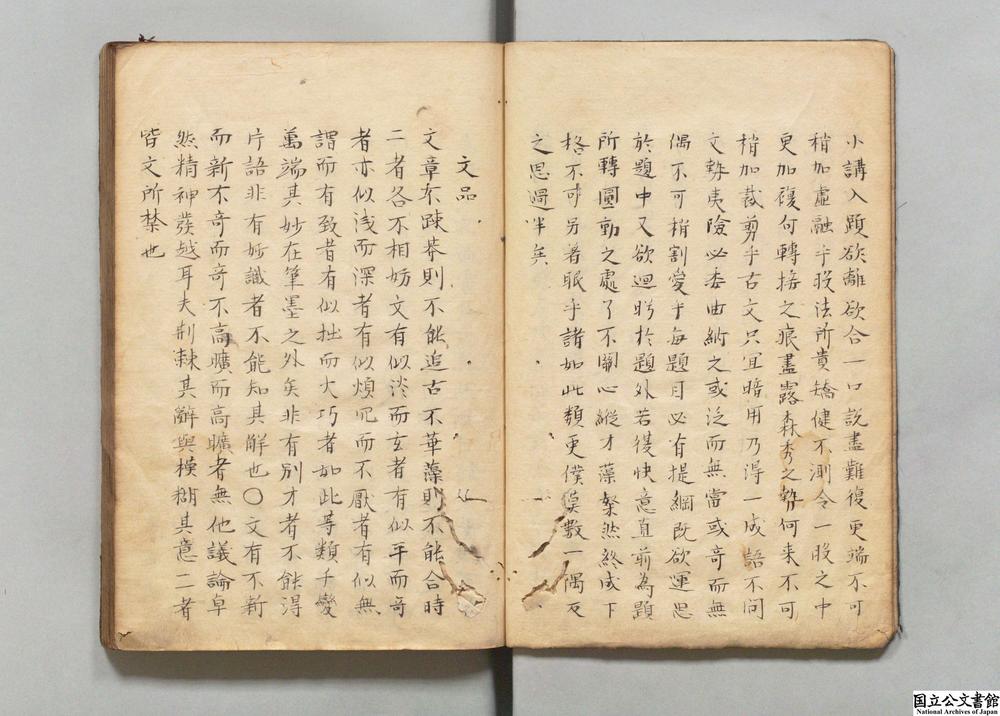 小講入題欲離欲合一口説盡難復更端不可
稍加虛融乎股法所貴矯健不測令一股之中
更加複何轉接之痕盡露森秀之勢何来不可
稍加裁剪乎古文只宜暗用乃得一成語不問
文勢夷險必委曲納之或泛而無當或奇而無
偶不可稍割愛乎每題目必有提綱既欲運思
於題中又欲迴盼於題外若後快意直前為題
所轉圓動之處了不關心縱才藻粲然終成下
格不可另著眼乎諸如此類更僕數一隅反
之思過半矣
文品
文章不踈莽則不能追古不華藻則不能合時
二者各不相妨文有似淡而玄者有似平而奇
者亦似浅而深者有似煩冗而不厭者有似無
謂而有致者有似拙而大巧者如此等類千變
萬端其妙在筆墨之外矣非有別才者不能得
片語非有妙識者不能知其解也〇文有不新
而新不奇而奇不高曠而高曠者無他議論卓
然精神發越耳夫荆棘其辭與模糊其意二者
皆文所禁也
国立公文書館
National Archives of Japan